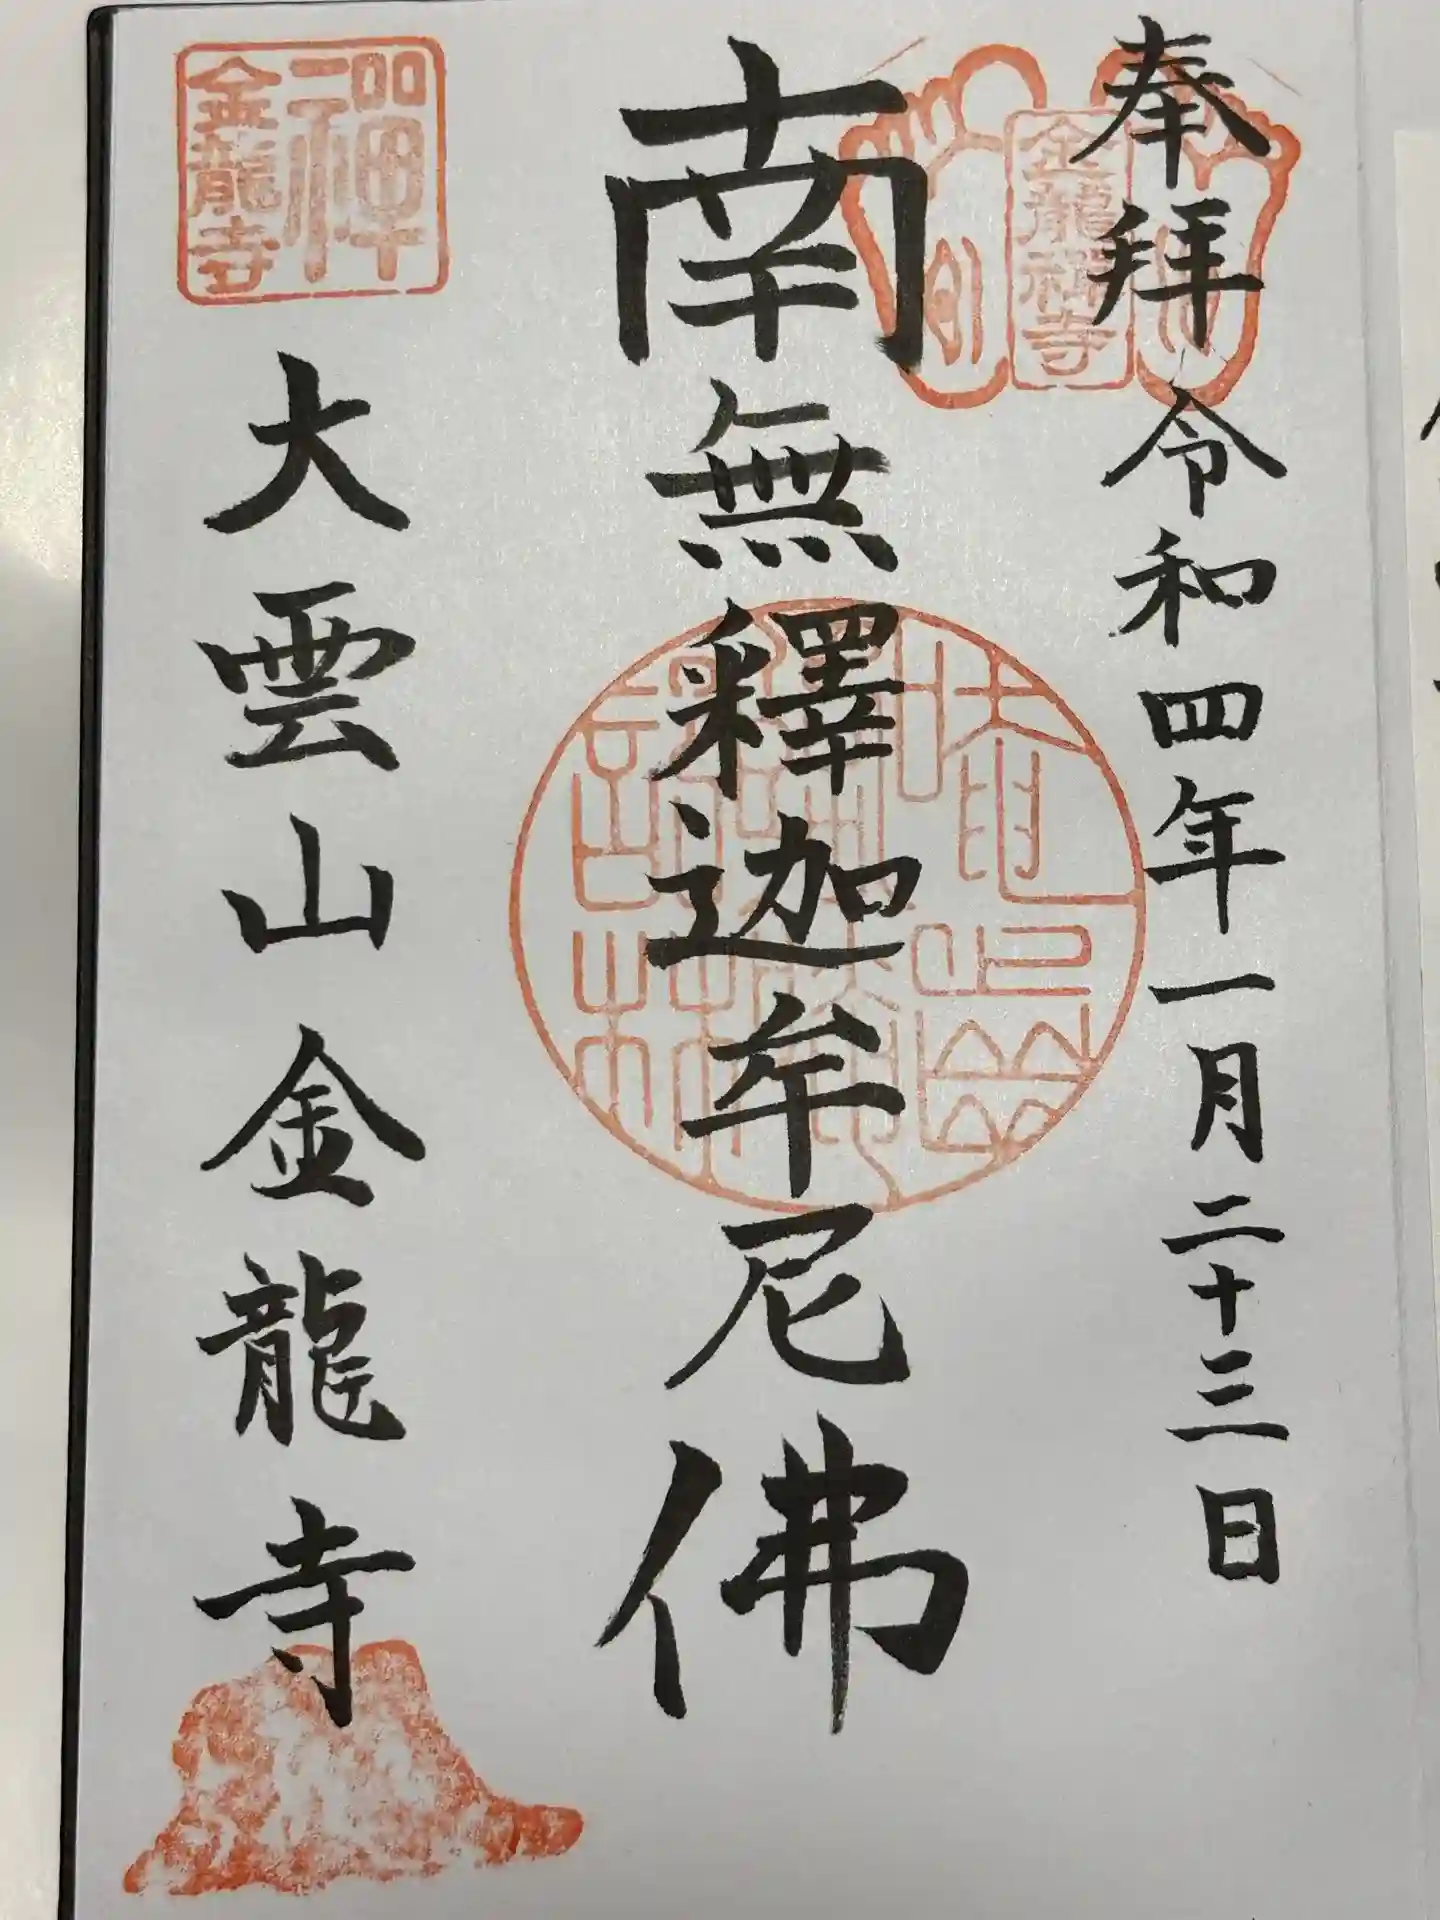 奉拝 令和四年一月二十三日
金龍禅寺
南無釋迦牟尼佛
禅
金龍寺
大雲山金龍寺